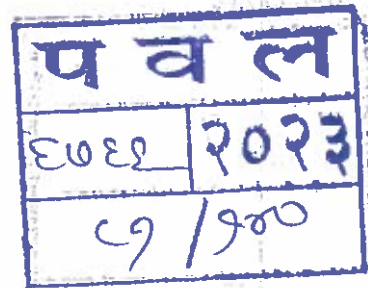 प व ल
६७६६ २०२३
८१ /१४०